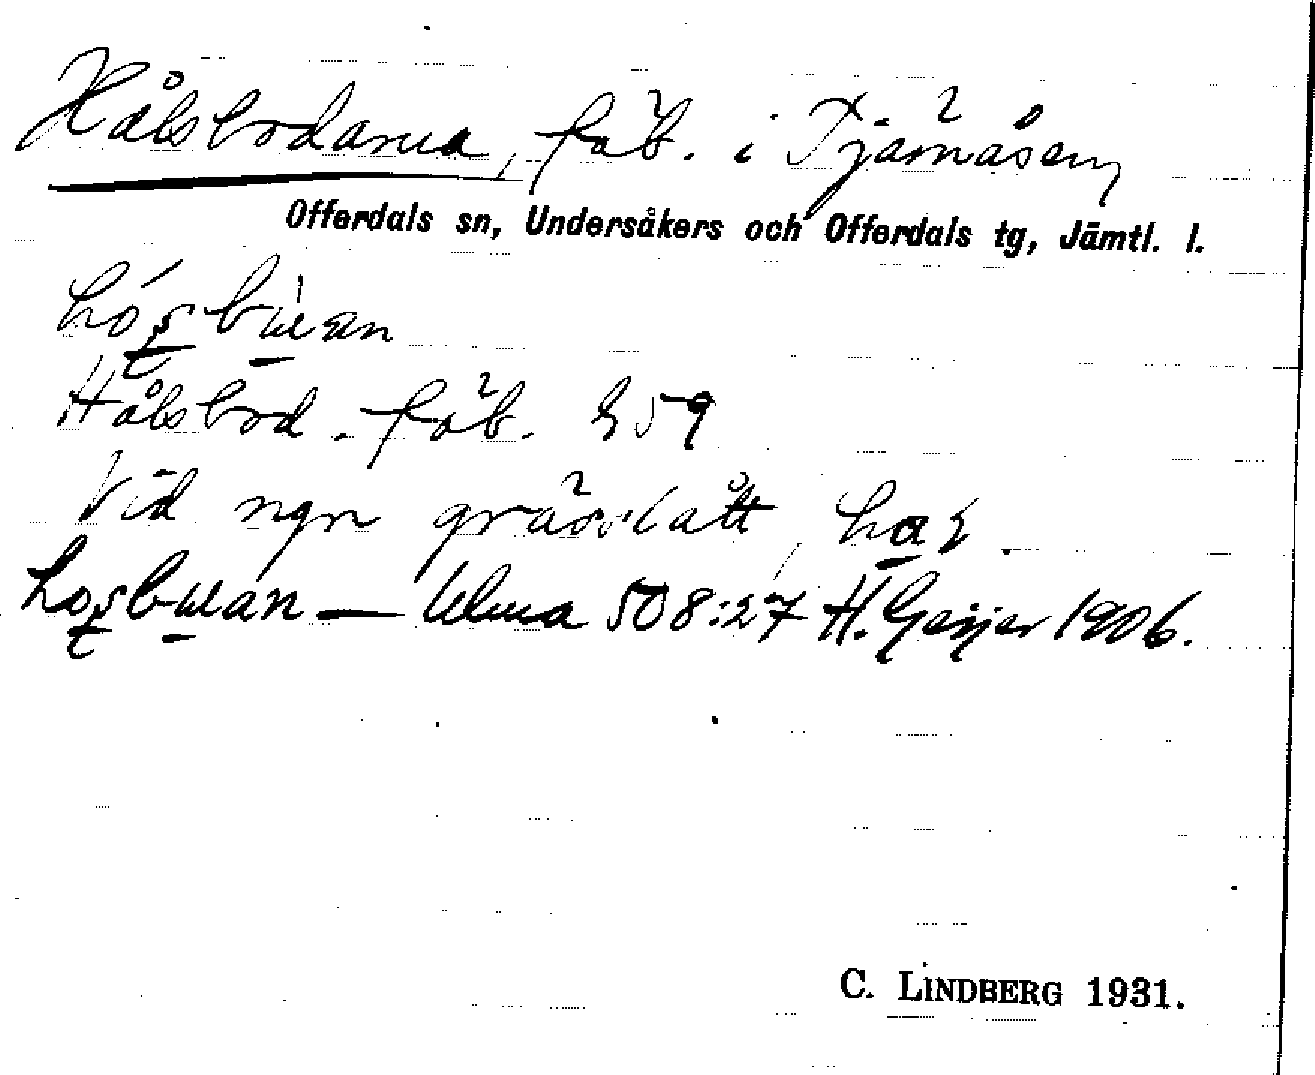 Hålsbodarna, fäb. i Tjärnåsen,
Offerdals sn, Undersåkers och Offerdals tg, Jämtl. l.
Hålsbod. fäb. G 59
Vid ngn grässlått,
Ulma 508:27 H. Geijer 1906.
C. LINDBERG 1931.